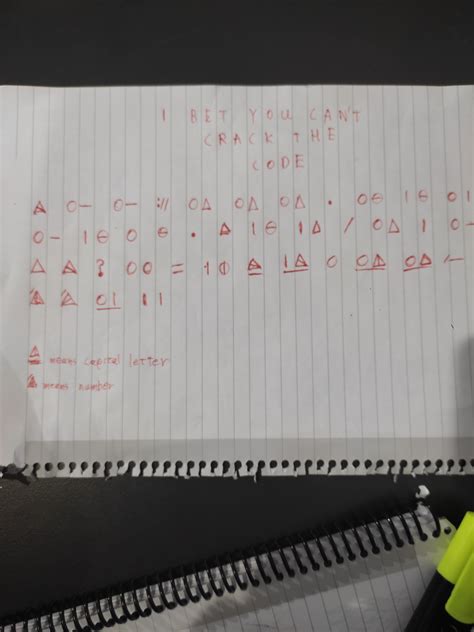 I BET YOU CAN'T
CRACK THE
CODE
△ O— O— :// O△ O△ O△ . O⊖ 1 ⊖ O1
O— 1 ⊖ O ⊖ . △ 1 ⊖ 1△ / O△ 1 O—
△ △ ? O O = 1 ⏀ △ 1△ O O△ O△ —
△ △ O1 1 1
△ means capital letter
△ means number